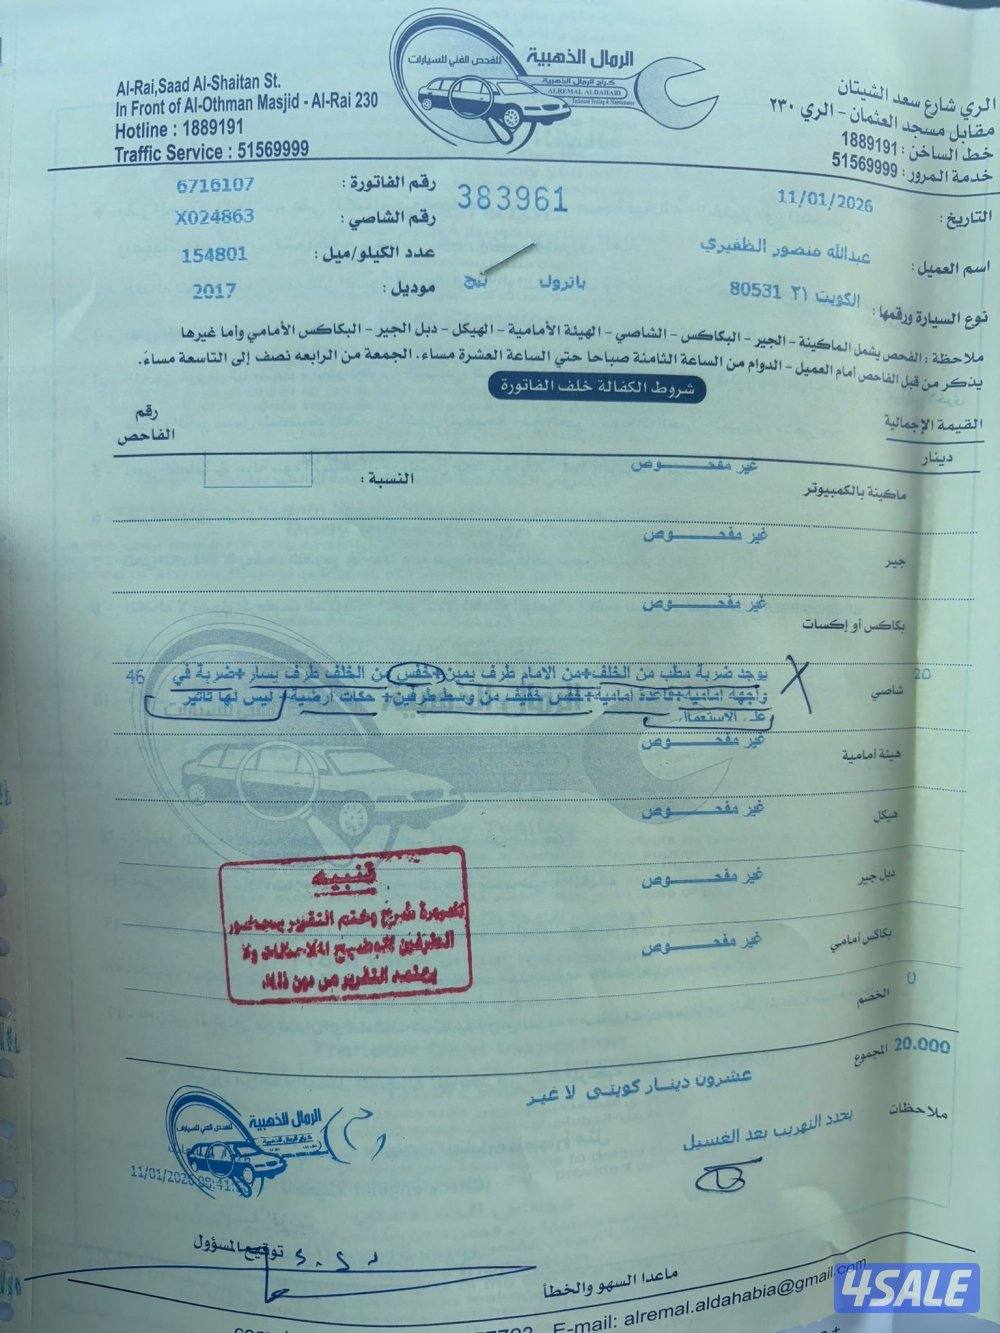 Al-Rai,Saad Al-Shaitan St.
In Front of Al-Othman Masjid - Al-Rai 230
Hotline : 1889191
Traffic Service : 51569999
الرمال الذهبية
للفحص الفني للسيارات
كراج الرمال الذهبية
ALREMAL ALDAHABI
Technical Testing & Maintenance
الري شارع سعد الشيتان
مقابل مسجد العثمان - الري ٢٣٠
خط الساخن : 1889191
خدمة المرور : 51569999
التاريخ : 11/01/2026
383961
رقم الفاتورة : 6716107
رقم الشاصي : X024863
اسم العميل : عبدالله منصور الظفيري
عدد الكيلو/ميل : 154801
نوع السيارة ورقمها : الكويت ٢١ 80531 باترول بيج
موديل : 2017
ملاحظة : الفحص يشمل الماكينة - الجير - البكاكس - الشاصي - الهيئة الأمامية - الهيكل - دبل الجير - البكاكس الأمامي وأما غيرها
يذكر من قبل الفاحص أمام العميل - الدوام من الساعة الثامنة صباحا حتي الساعة العشرة مساء. الجمعة من الرابعه نصف إلى التاسعة مساءً.
شروط الكفالة خلف الفاتورة
القيمة الإجمالية
دينار
رقم
الفاحص
ماكينة بالكمبيوتر غير مفحوص النسبة :
جير غير مفحوص
بكاكس أو إكسات غير مفحوص
20 شاصي 46
يوجد ضربة مطب من الخلف+من الامام طرف يمين+خفس من الخلف طرف يسار+ضربة في
واجهه امامية+قاعدة امامية+خفس خفيف من وسط طرفين+ حكات ارضية+ ليس لها تاثير
على الاستعمال
هيئة أمامية غير مفحوص
هيكل غير مفحوص
دبل جير غير مفحوص
بكاكس أمامي غير مفحوص
تنبيه
ضرورة شرح وختم التقرير بحضور
الطرفين لتوضيح الملاحظات ولا
يعتمد التقرير من دون ذلك
الخصم 0
المجموع 20.000
عشرون دينار كويتى لا غير
ملاحظات يحدد التهريب بعد الغسيل
الرمال الذهبية
للفحص الفني للسيارات
كراج الرمال الذهبية
توقيع المسؤول
ماعدا السهو والخطأ
E-mail: alremal.aldahabia@gmail.com
4SALE